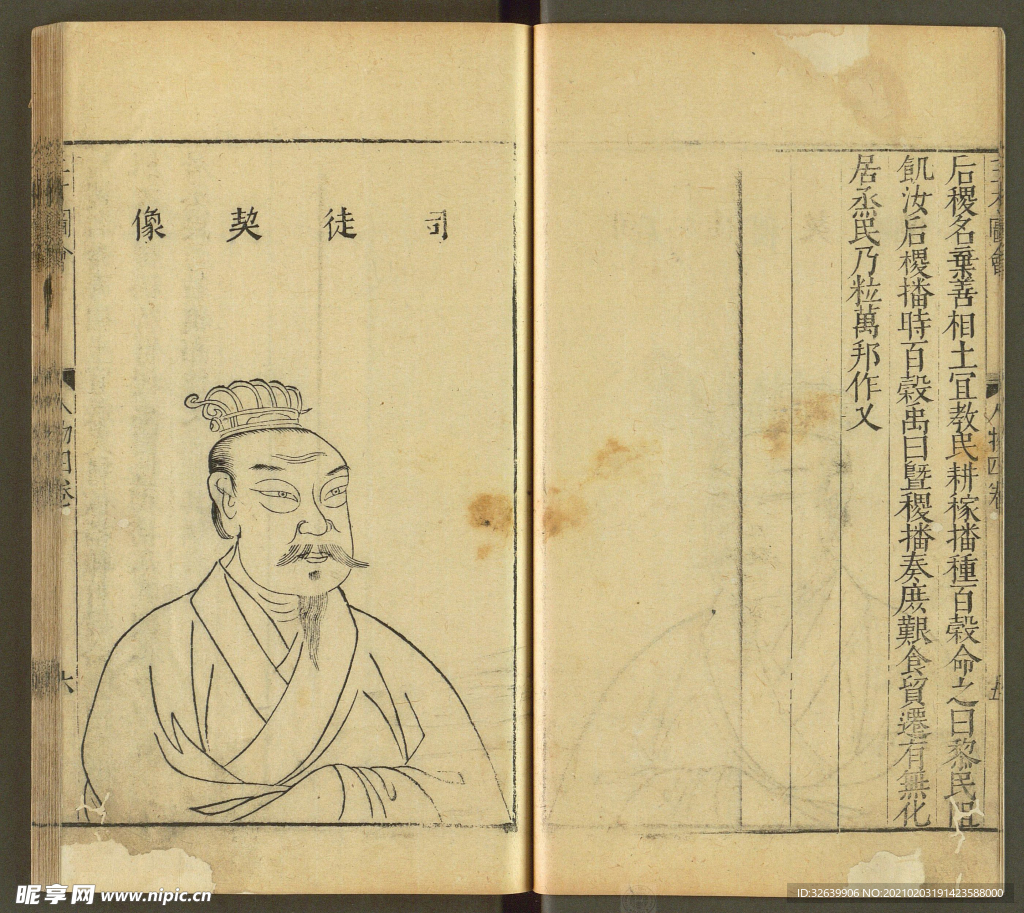 后稷名棄善相土宜教民耕稼播種百榖命之曰黎民阻
飢汝后稷播時百榖禹曰曁稷播奏庶艱食貿遷有無化
居烝民乃粒萬邦作乂
司徒契像
人物四卷
昵享网 www.nipic.cn
ID:32639906 NO:20210203191423588000